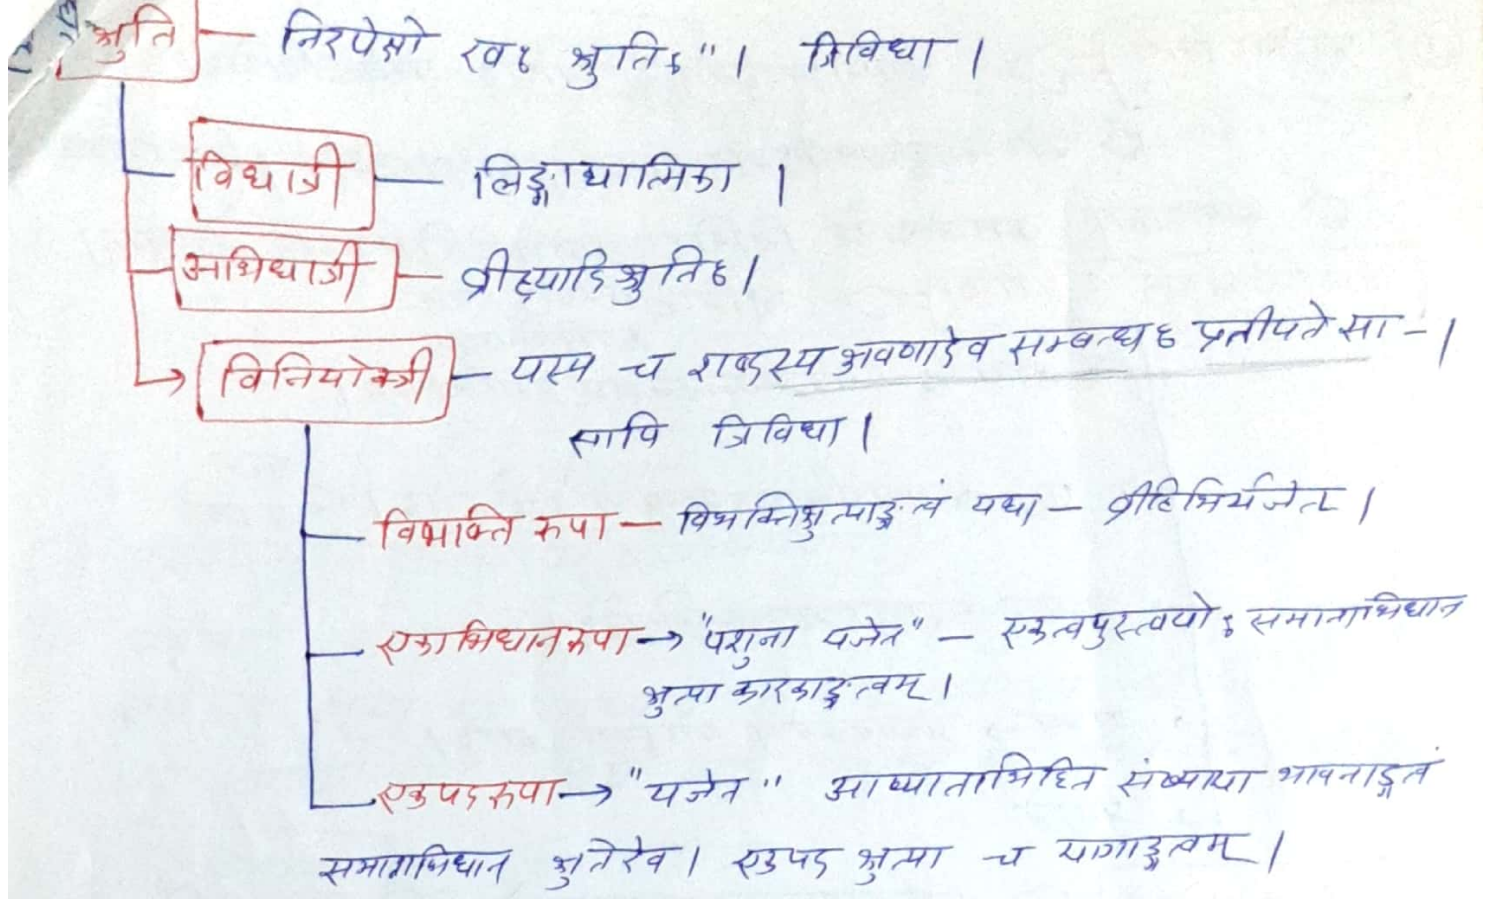 श्रुति — निरपेक्षो रवः श्रुतिः" । त्रिविधा ।
विधात्री — लिङ्गाद्यात्मिका ।
अभिधात्री — व्रीह्यादिश्रुतिः ।
विनियोक्त्री — यस्य च शब्दस्य श्रवणादेव सम्बन्धः प्रतीयते सा - ।
सापि त्रिविधा ।
विभक्ति रूपा — विभक्तिश्रुत्याङ्गत्वं यथा — व्रीहिभिर्यजेत ।
एकाभिधानरूपा → "पशुना यजेत" — एकत्वपुंस्त्वयोः समानाभिधान
श्रुत्या कारकाङ्गत्वम् ।
एकपदरूपा → "यजेत" आख्याताभिहित संख्याया भावनाङ्गत्वं
समानाभिधान श्रुतेरेव । एकपद श्रुत्या च यागाङ्गत्वम् ।